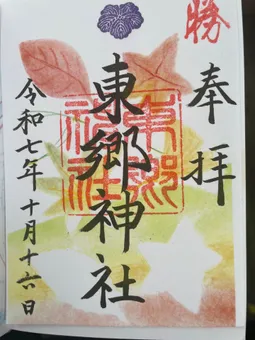 勝
奉拝
東郷神社
東郷神社
令和七年十月十六日